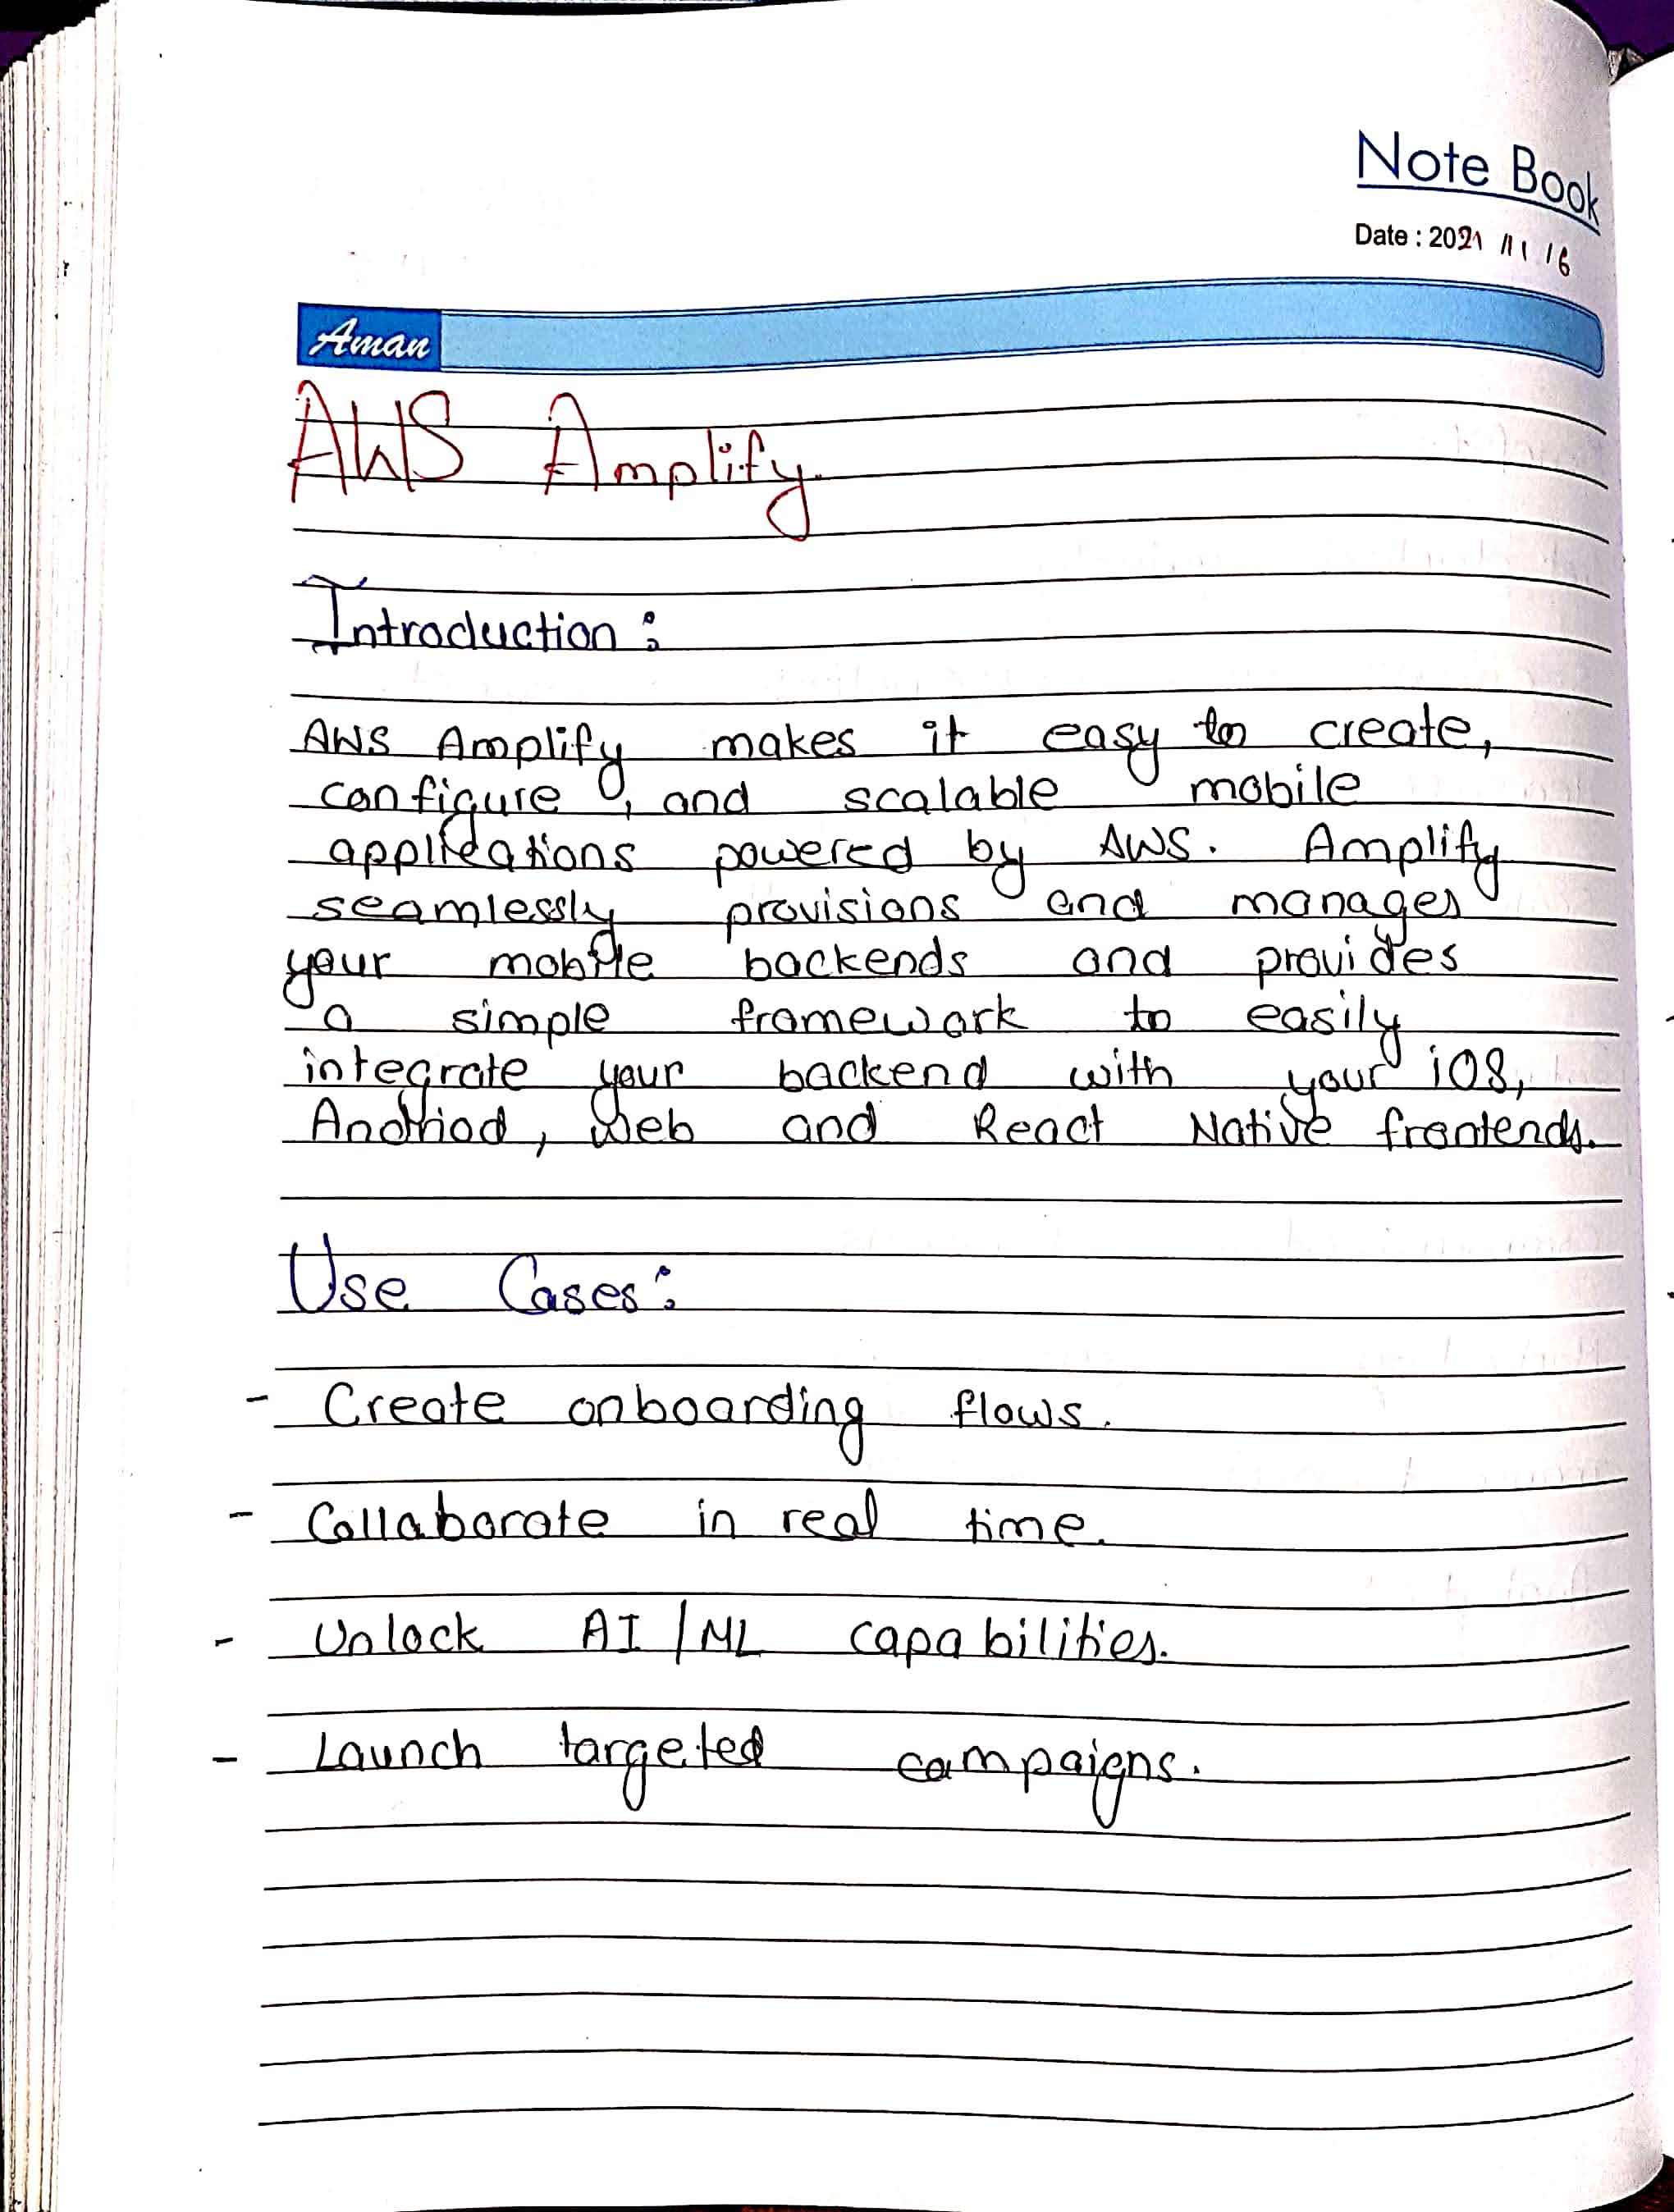 Note Book
Date : 2021 /11/ 16
Aman
AWS Amplify
Introduction :
AWS Amplify makes it easy to create,
configure, and scalable mobile
applications powered by AWS. Amplify
seamlessly provisions and manages
your mobile backends and provides
a simple framework to easily
integrate your backend with your iOS,
Andriod, Web and React Native frontends.
Use Cases :
- Create onboarding flows.
- Collaborate in real time.
- Unlock AI/ML capabilities.
- Launch targeted campaigns.